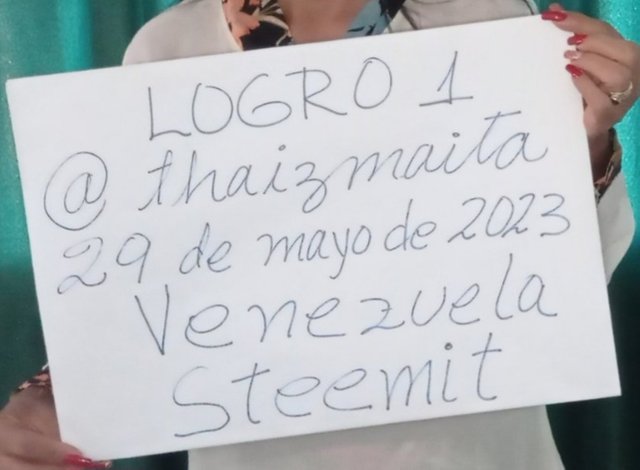 LOGRO 1
@thaizmaita
29 de mayo de 2023
Venezuela
Steemit